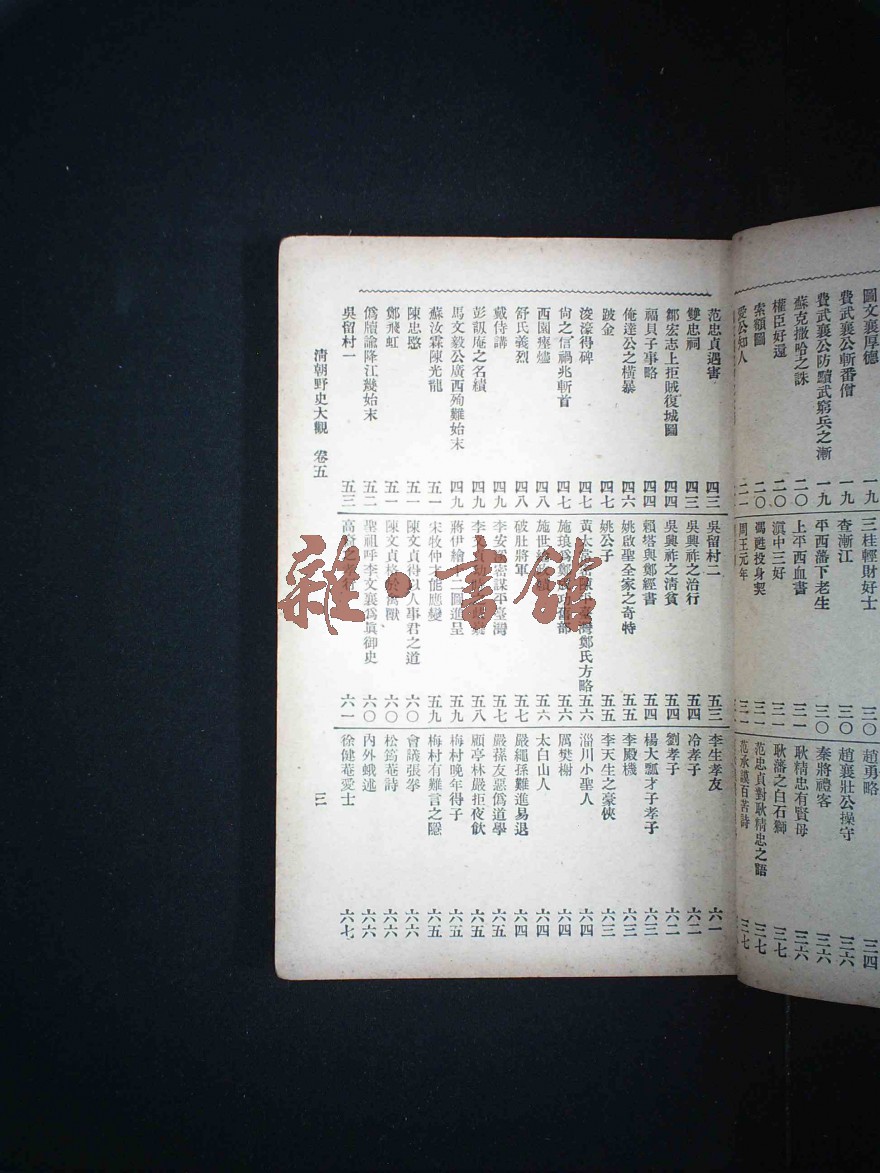 圖文襄厚德 一九
費武襄公斬番僧 一九
費武襄公防黷武窮兵之漸 一九
蘇克撒哈之誅 二〇
權臣好還 二〇
索額圖 二〇
愛公知人 二一
三桂輕財好士 三〇
查漸江 三〇
平西藩下老生 三〇
上平西血書 三一
滇中三好 三一
馮甦投身契 三一
周王元年
趙勇略 三四
趙襄壯公操守 三六
秦將禮客 三六
耿精忠有賢母 三六
耿藩之白石獅 三七
范忠貞對耿精忠之語 三七
范承謨百苦詩 三七
范忠貞遇害 四三
雙忠祠 四三
鄒宏志上拒賊復城圖 四四
福貝子事略 四四
俺達公之橫暴 四六
跛金 四六
浚濠得碑 四七
尚之信禍兆斬首 四七
西園瘞爐 四八
舒氏義烈 四八
戴侍講 四九
彭訒庵之名績 四九
馬文毅公廣西殉難始末 四九
蘇汝霖陳光龍 五一
陳忠愍 五一
鄭飛虹 五一
僞牘諭隆江幾始末 五二
吳留村一 五三
吳留村二 五三
吳興祚之治行 五四
吳興祚之清貧 五四
賴塔與鄭經書 五四
姚啟聖全家之奇特 五五
姚公子 五五
黃 臺灣鄭氏方略 五六
施琅爲鄭 部 五六
施世 五六
破肚將軍 五七
李安溪密謀平臺灣 五七
李文貞 五八
蔣伊繪十二圖進呈 五九
宋牧仲才能應變 五九
陳文貞得 人事君之道 六〇
陳文貞格於 獸 六〇
聖祖呼李文襄爲眞御史 六〇
高 之 六一
李生孝友 六一
冷孝子 六二
劉孝子 六二
楊大瓢才子孝子 六三
李殿機 六三
李天生之豪俠 六三
淄川小聖人 六四
厲樊榭 六四
太白山人 六四
嚴繩孫難進易退 六四
嚴蓀友惡僞道學 六五
顧亭林嚴拒夜飲 六五
梅村晚年得子 六五
梅村有難言之隱 六五
會議張拳 六六
松筠菴詩 六六
內外蛾述 六六
徐健菴愛士 六七
清朝野史大觀 卷五 三
雜·書館